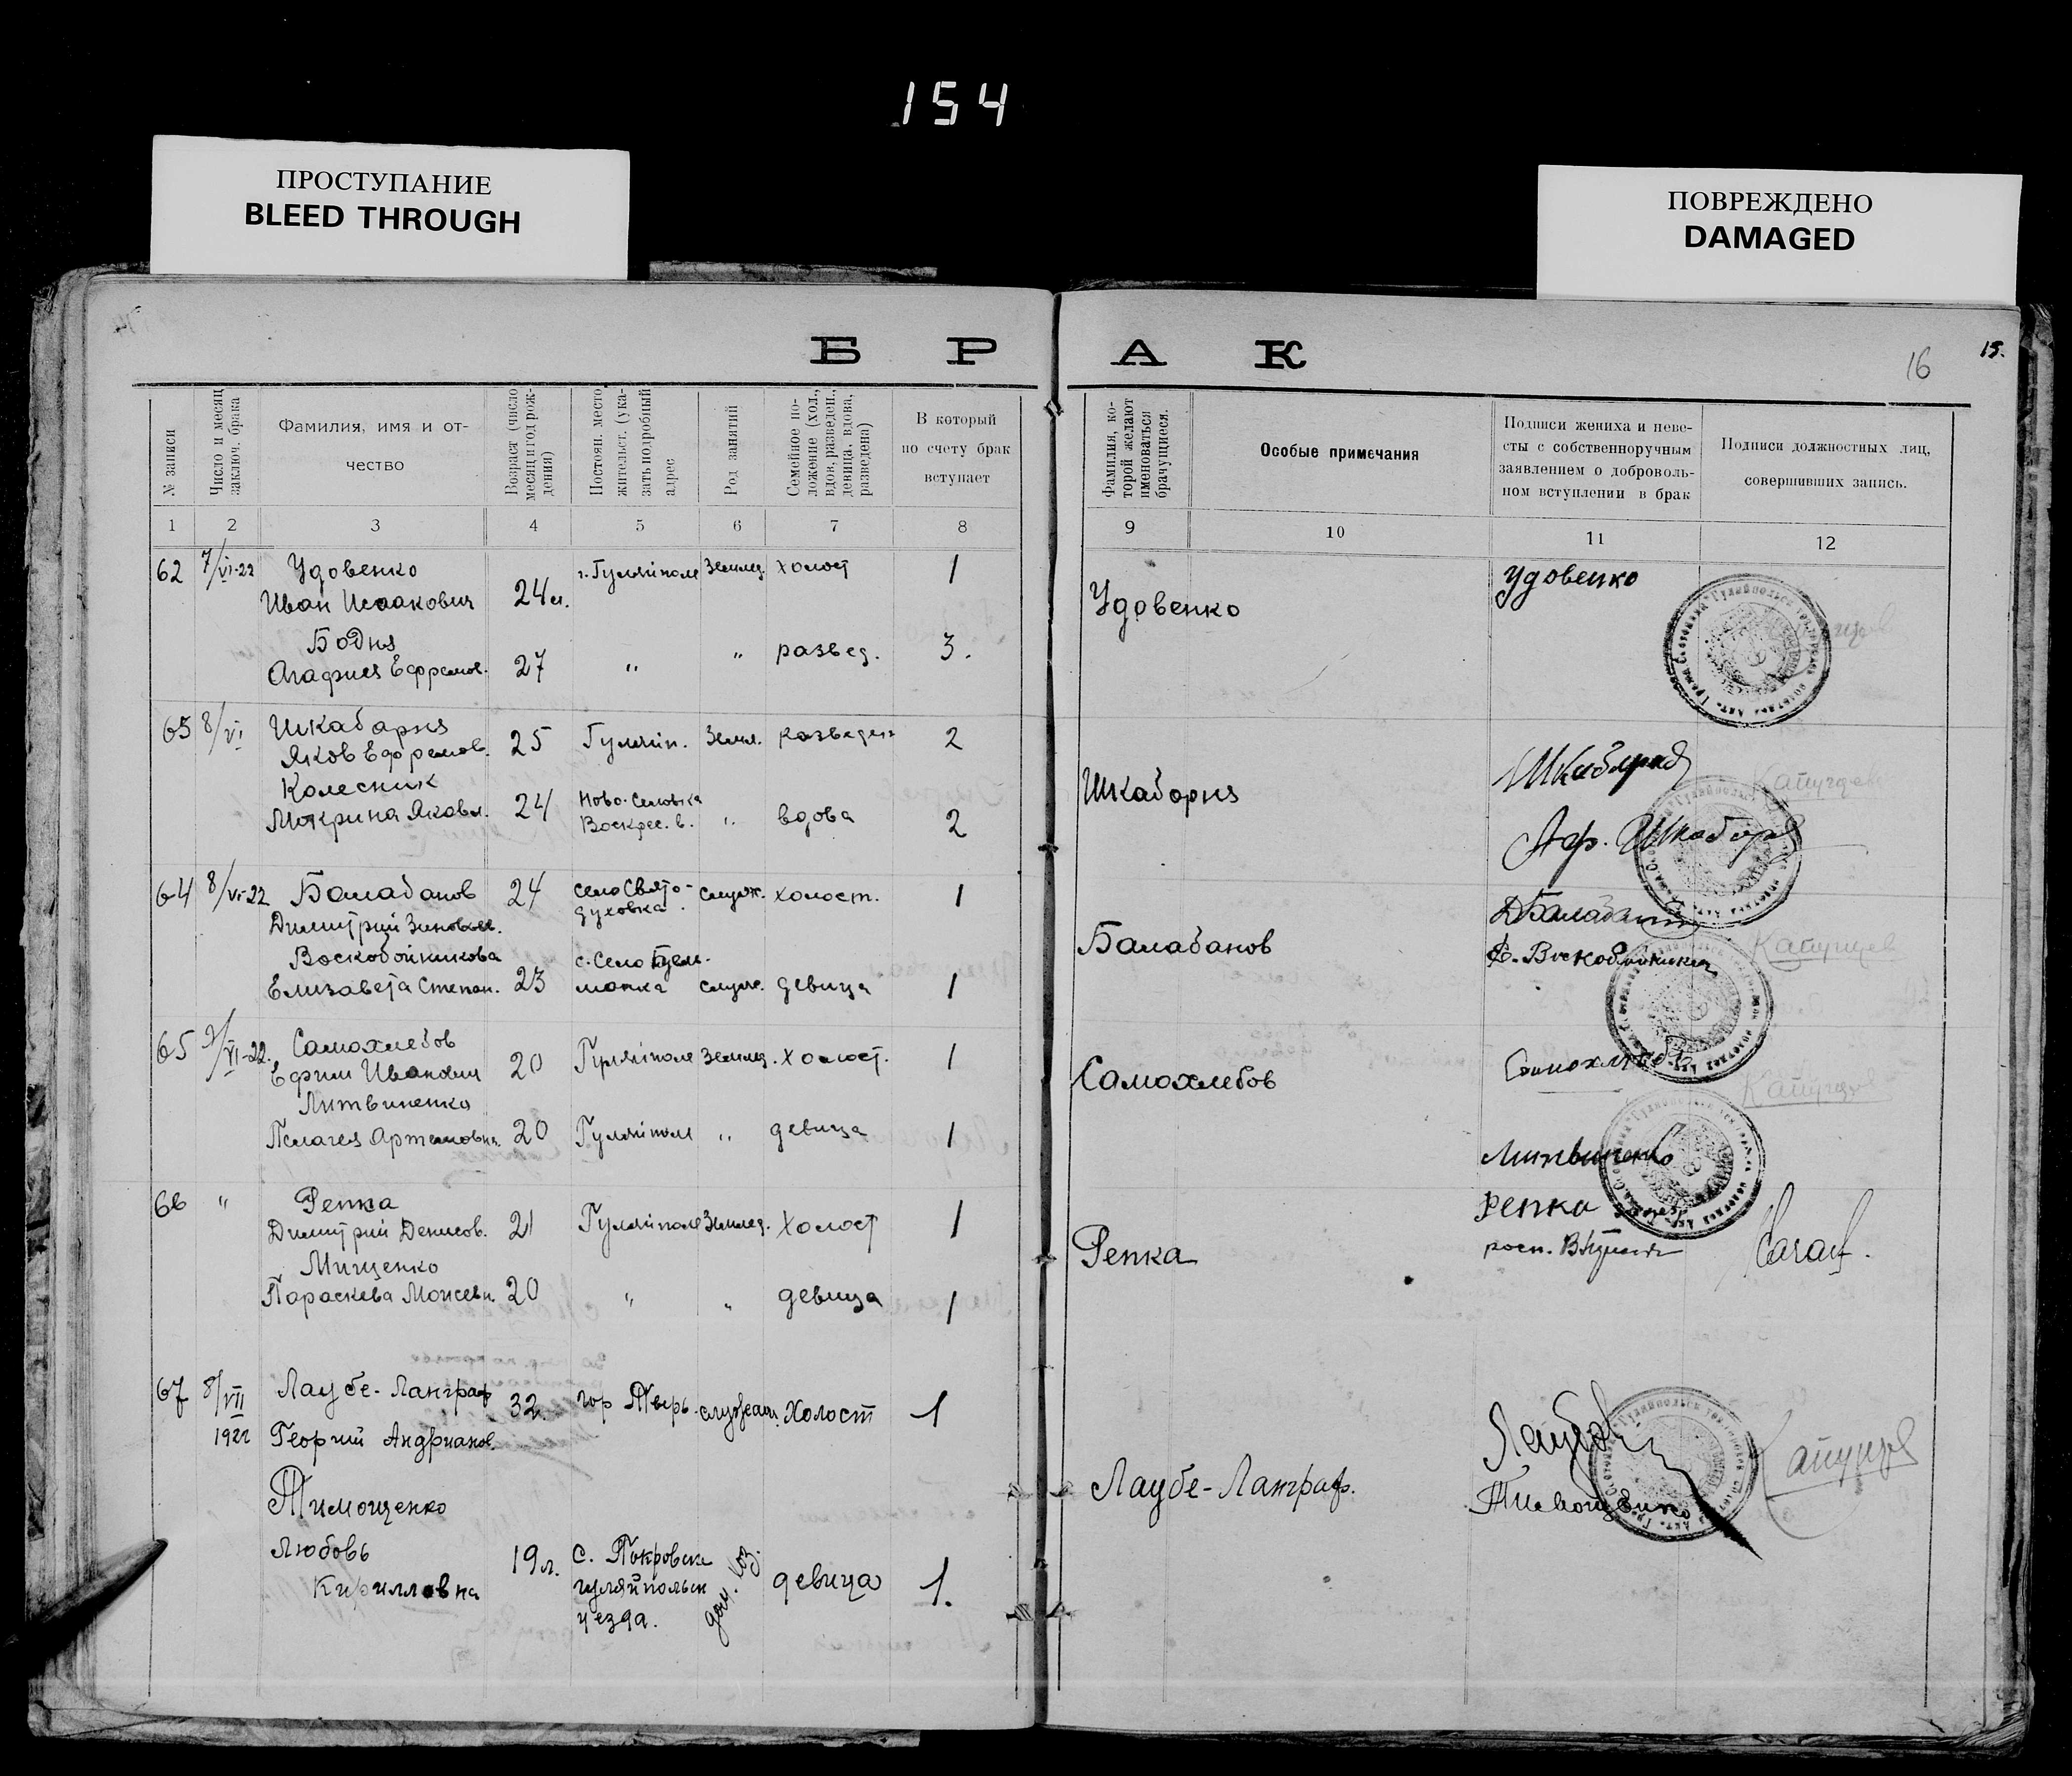 154
ПРОСТУПАНИЕ
BLEED THROUGH
ПОВРЕЖДЕНО
DAMAGED
БРАК
16
15.
№ записи
Число и месяц
заключ. брака
Фамилия, имя и от-
чество
Возраст (число
месяц и год рож-
дения)
Постоян. место
жительст. (ука-
зать подробный
адрес
Род занятий
Семейное по-
ложение (хол.,
вдов, разведен.,
девица, вдова,
разведена)
В который
по счету брак
вступает
Фамилия, ко-
торой желают
именоваться
брачущиеся.
Особые примечания
Подписи жениха и неве-
сты с собственноручным
заявлением о доброволь-
ном вступлении в брак
Подписи должностных лиц,
совершивших запись.
1 2 3 4 5 6 7 8 9 10 11 12
62 7/VI-22 Удовенко г. Гуляйполе Землед. холост 1 Удовенко
Иван Исаакович 24 л. Удовенко
Бодня
Агафия Ефремов. 27 " " развед. 3.
63 8/VI Шкабарня
Яков Ефремов. 25 Гуляйп. Землл. разведен 2
Колесник
Мокрина Яковл. 24 Ново- Воскрес. в. " вдова 2 Шкабарня
64 8/VI-22 Балабанов 24 село Свято- служ. холост. 1
Димитрий Зиновьев. духовка Балабанов
Воскобойникова с. Село
Елизавета Степан. 23 служ. девица 1
65 9/VI-22. Самохлебов
Ефим Иванович 20 Гуляйполе Землед. холост. 1 Самохлебов
Литвиненко
Пелагея Артемовна. 20 Гуляйполе " девица 1 Литвиненко
66 " Репка Репка
Димитрий Денисов. 21 Гуляйполе Землед. холост 1 Репка
Мищенко
Параскева Моисевн. 20 " " девица 1
67 8/VII Лаубе-Ланграф 32. гор Тверь. служащ. Холост 1
1922 Георгий Андрианов.
Лаубе-Ланграф.
Тимощенко Тимощенко
Любовь 19 л. с. Покровск девица 1.
Кирилловна гуляйпольск
уезда.